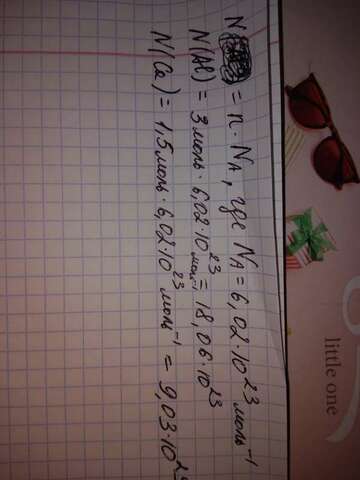 N = n · N_A, где N_A = 6,02 · 10²³ моль⁻¹
N(Al) = 3 моль · 6,02 · 10²³ моль⁻¹ = 18,06 · 10²³
N(Ca) = 1,5 моль · 6,02 · 10²³ моль⁻¹ = 9,03 · 10²
little one